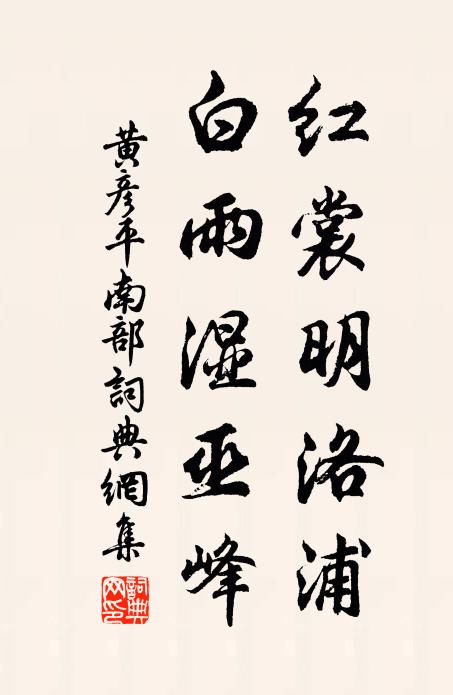 红裳明洛浦
白雨湿巫峰
黄彦平南部詞典網集
詞典网印